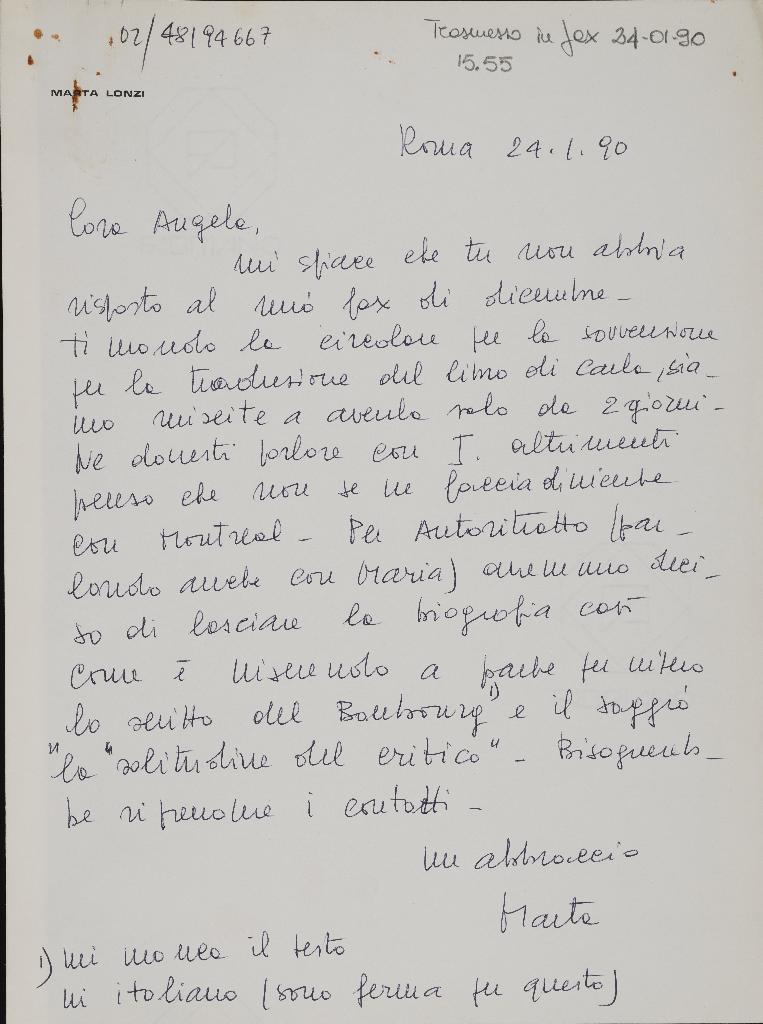 02/48194667
Trasmesso in fax 24-01-90
15.55
MARTA LONZI
Roma 24.1.90
Cara Angela,
mi spiace che tu non abbia
risposto al mio fax di dicembre -
ti mando la circolare per la sovvenzione
per la traduzione del libro di Carla, sia-
mo riuscite a averla solo da 2 giorni -
Ne dovresti parlare con I. altrimenti
penso che non se ne faccia di niente
con Montreal - Per Autoritratto (par-
lando anche con Maria) avremmo deci-
so di lasciare la biografia così
come è inserendo a parte per intero
lo scritto del Beaubourg 1) e il saggio
"la "solitudine del critico" - Bisognereb-
be riprendere i contatti -
un abbraccio
Marta
1) mi manca il testo
in italiano (sono ferma per questo)